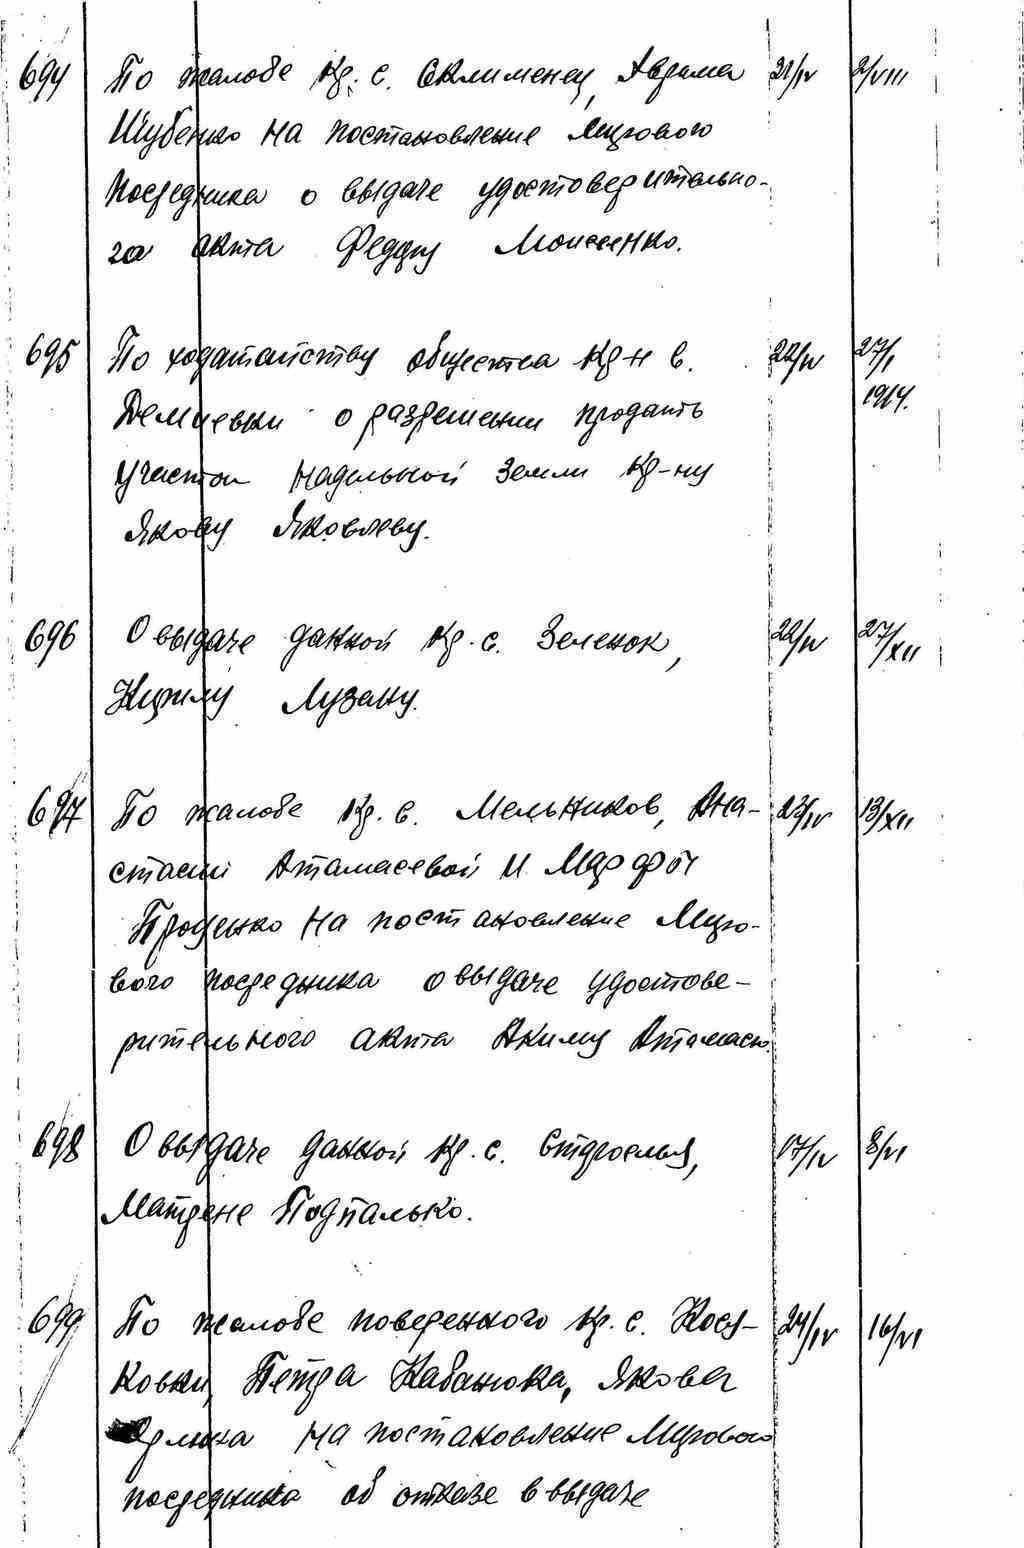 694 По жалобе кр. с. Склименец, Авдама 21/IV 2/VIII
Шубенко на постановление Мирового
посредника о выдаче удостоверительно-
го акта Федору Моисеенко.
695 По ходатайству общества кр-н в. 22/IV 27/I
Демиевки о разрешении продать 1914.
участок надельной земли кр-ну
Якову Яковлеву.
696 О выдаче данной кр. с. Зеленок, 22/IV 27/XII
Кирилу Лузану.
697 По жалобе кр. с. Мельников, Ана- 23/IV 13/XII
стасии Атамасевой и Марфы
Проценко на постановление Миро-
вого посредника о выдаче удостове-
рительного акта Акиму Атамасю.
698 О выдаче данной кр. с. 17/IV 8/VI
Матрене Подпалько.
699 По жалобе поверенного кр. с. Кося- 24/IV 16/VI
ковки, Петра Кабанюка, Якова
на постановление Мирового
посредника об отказе в выдаче